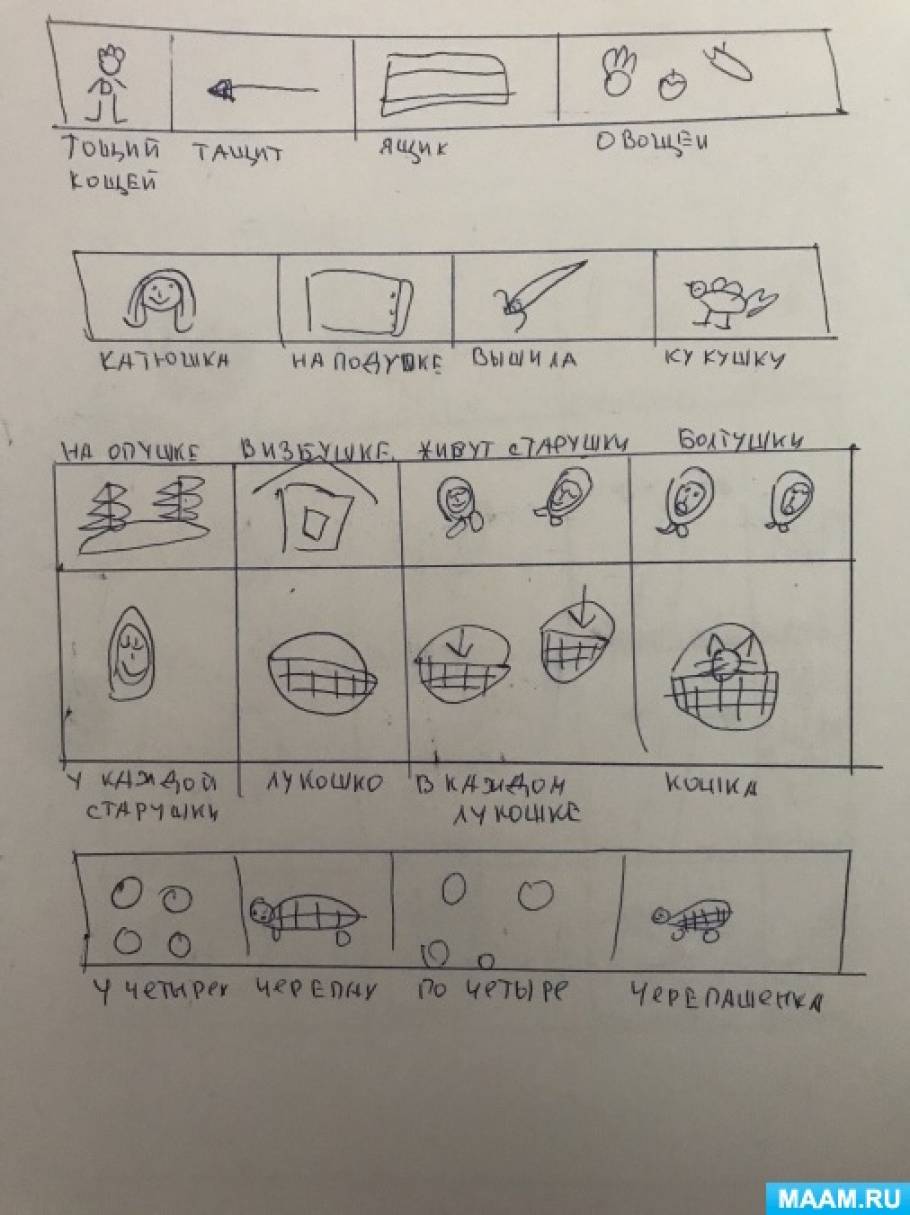 ТОЩИЙ ТАЩИТ ЯЩИК ОВОЩЕЙ
КОЩЕЙ
КАТЮШКА НА ПОДУШКЕ ВЫШИЛА КУКУШКУ
НА ОПУШКЕ В ИЗБУШКЕ ЖИВУТ СТАРУШКИ БОЛТУШКИ
У КАЖДОЙ ЛУКОШКО В КАЖДОМ КОШКА
СТАРУШКИ ЛУКОШКЕ
У ЧЕТЫРЕХ ЧЕРЕПАХ ПО ЧЕТЫРЕ ЧЕРЕПАШЕНКА
MAAM.RU